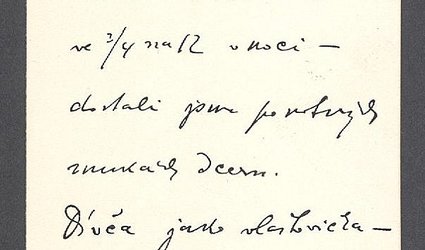 ve 3/4 na 12 v noci –
dostali jsme po
mukách dceru.
Děvča jako vlaštovička –